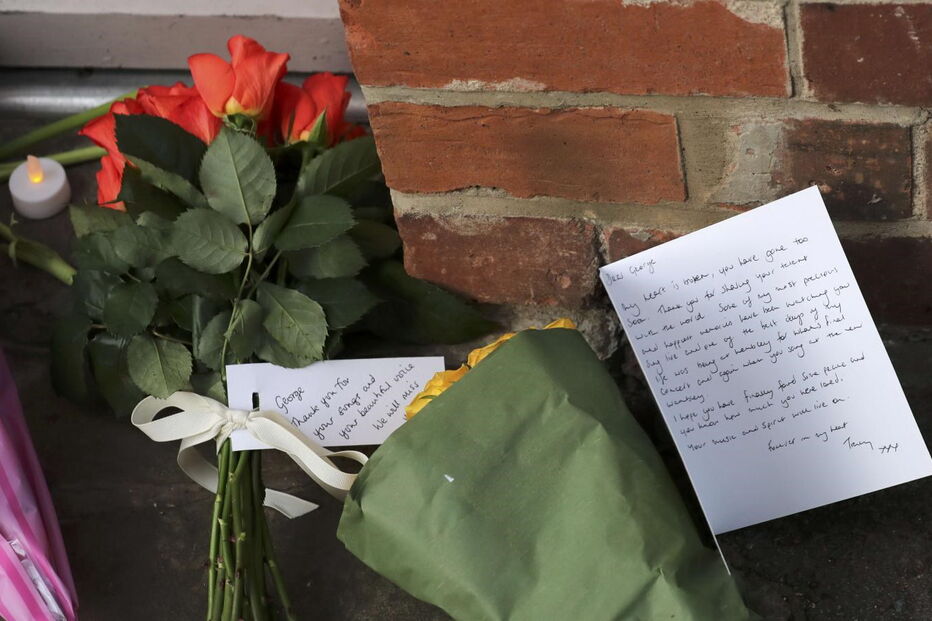 George
Thank you for
your songs and
your beautiful voice
We will miss
Dear George
My heart is broken, you have gone too
soon. Thank you for sharing your talent
with the world. Some of my most precious
and happiest memories have been watching you
sing live and one of the best days of my
life was being at Wembley for Wham's Final
concert and again when you sang at the new
Wembley.
I hope you have finally found some peace and
you knew how much you were loved.
Your music and spirit will live on.
Forever in my heart
xxx